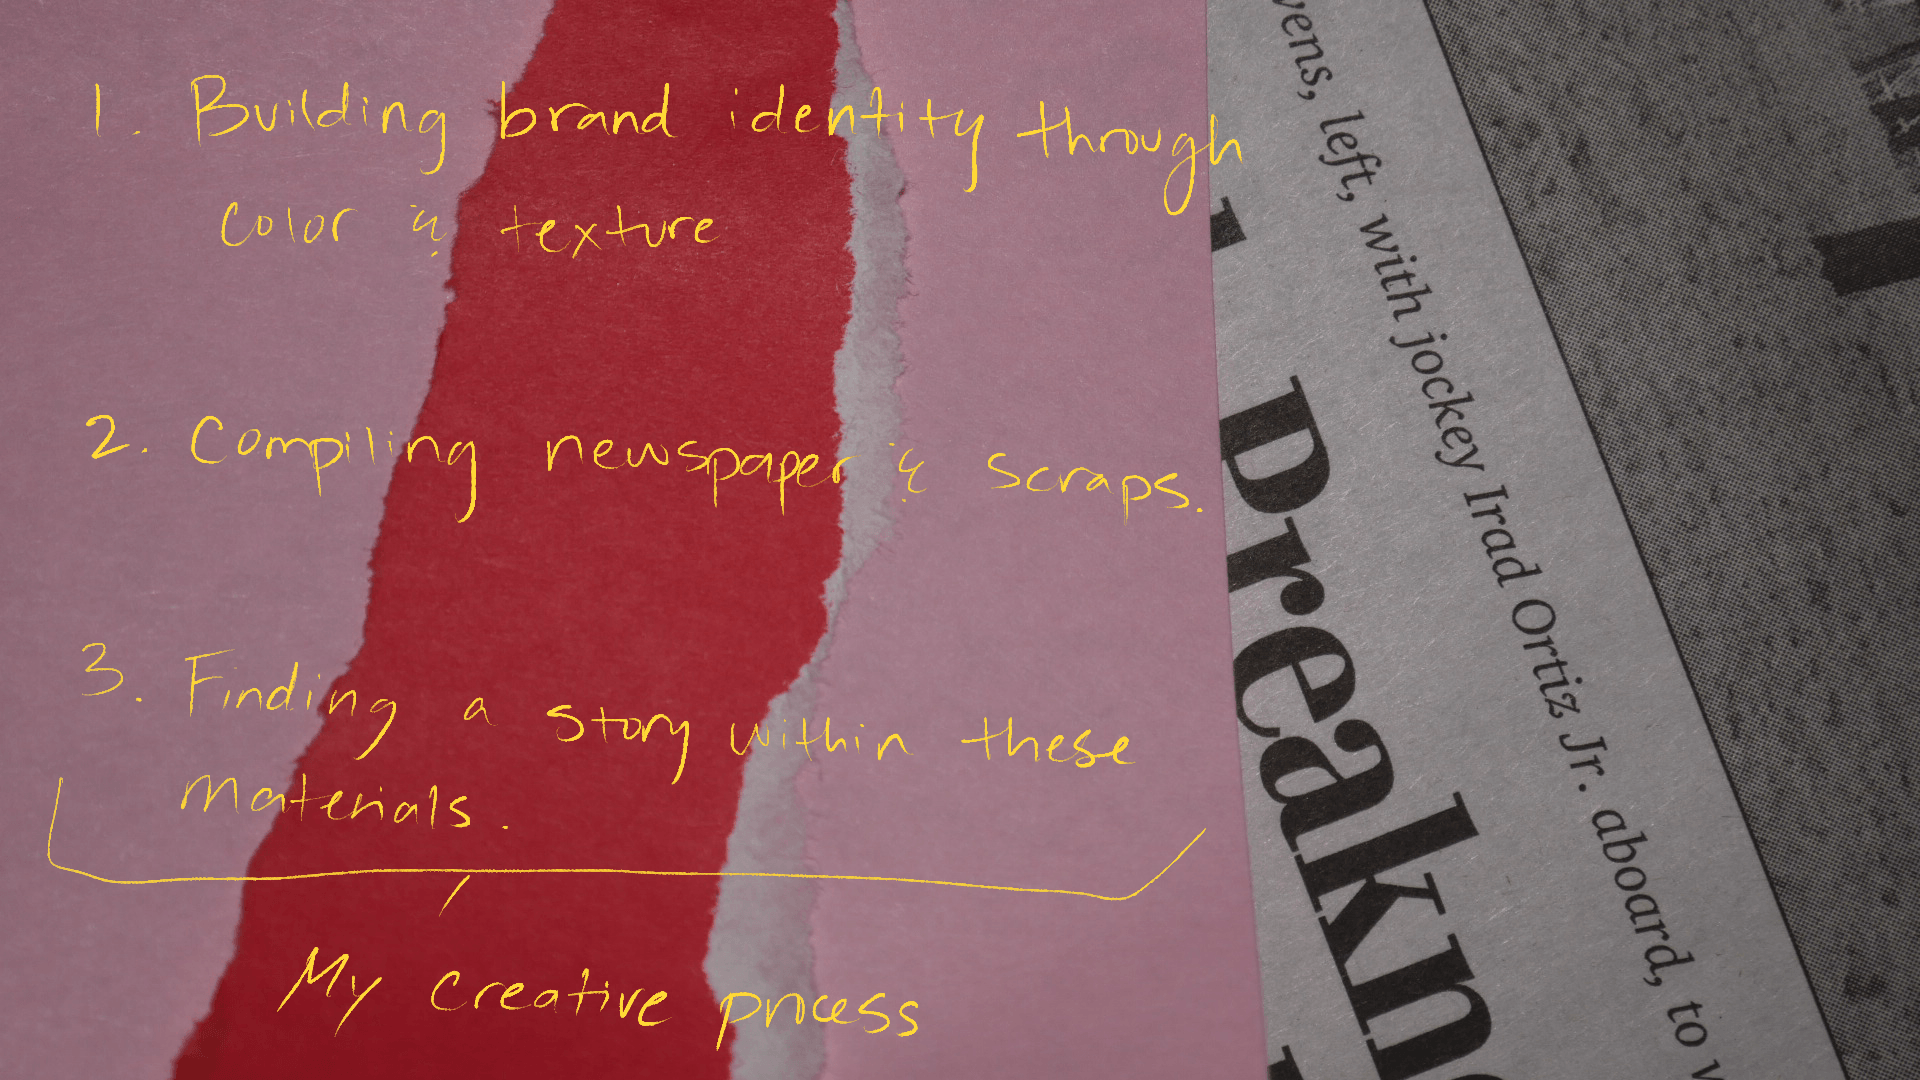 1. Building brand identity through
color & texture
2. Compiling newspaper & scraps.
3. Finding a story within these
materials.
My creative process
vens, left, with jockey Irad Ortiz Jr. aboard, to
Preakn